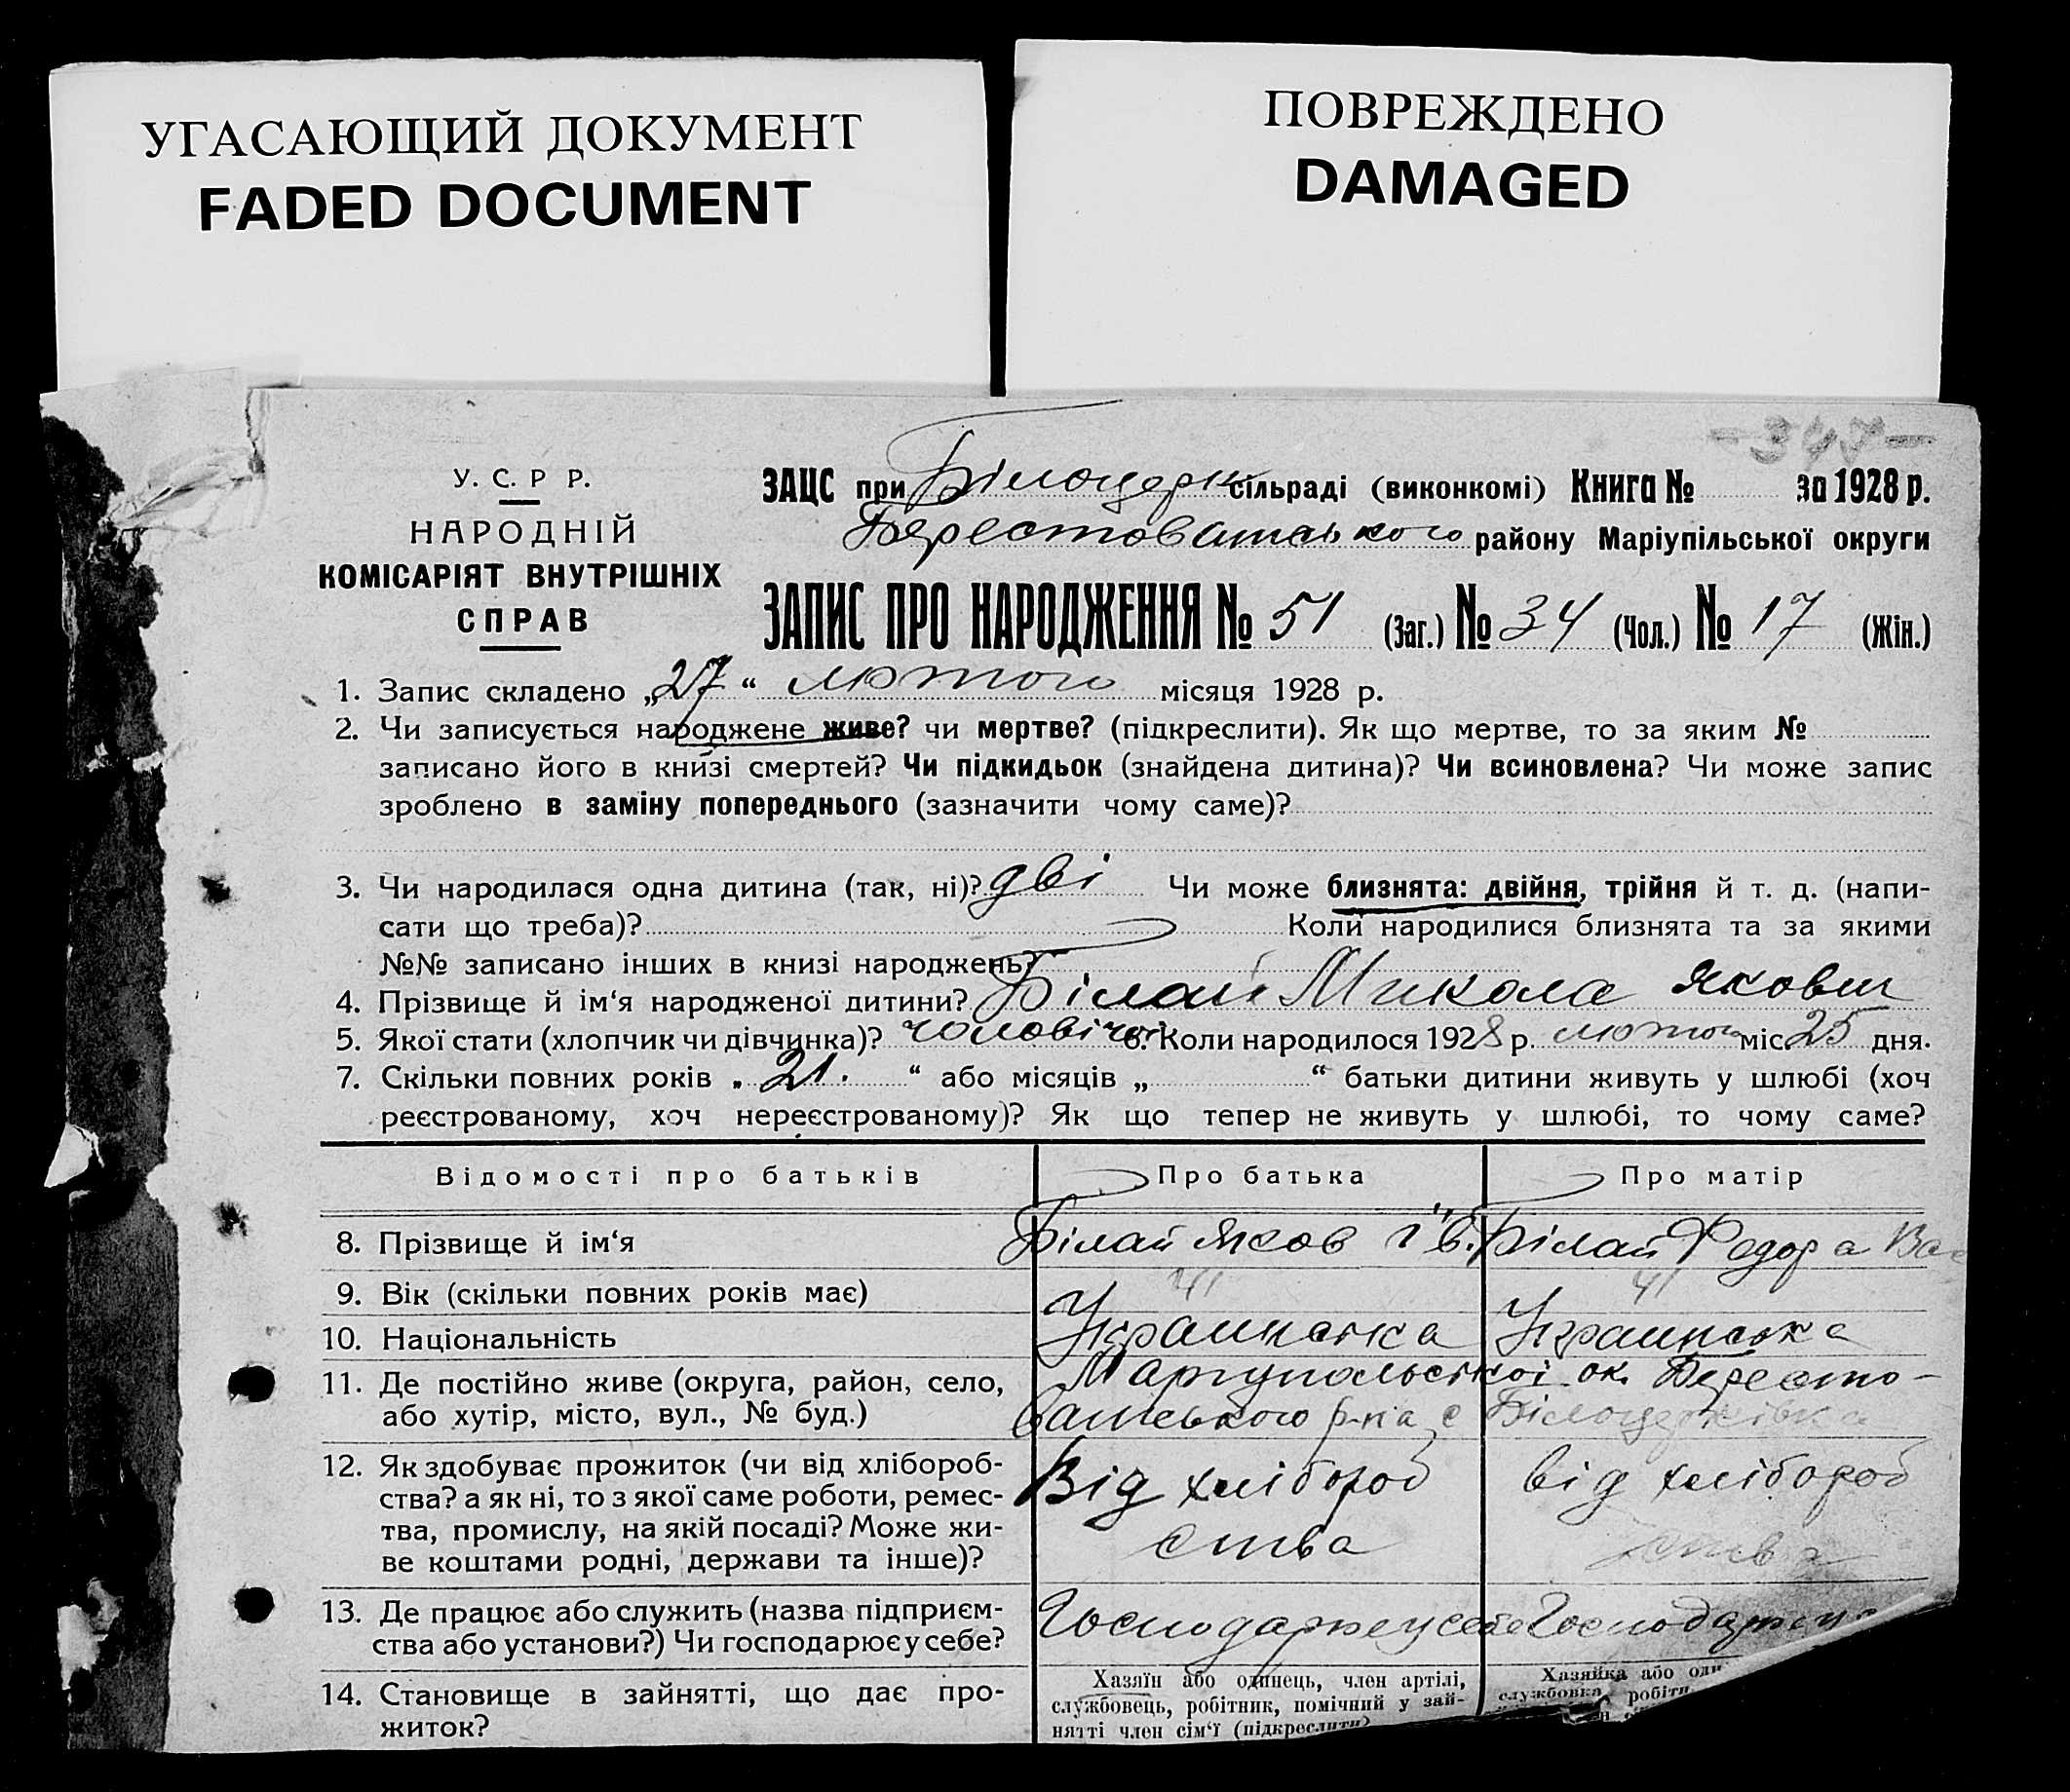 УГАСАЮЩИЙ ДОКУМЕНТ
FADED DOCUMENT
ПОВРЕЖДЕНО
DAMAGED
У. С. Р Р.
НАРОДНІЙ
КОМІСАРІЯТ ВНУТРІШНІХ
СПРАВ
ЗАЦС при Білоцерк сільраді (виконкомі) Книга № за 1928 р.
Берестоватського району Маріупільської округи
ЗАПИС ПРО НАРОДЖЕННЯ № 51 (Заг.) № 34 (Чол.) № 17 (Жін.)
1. Запис складено „27“ лютого місяця 1928 р.
2. Чи записується народжене живе? чи мертве? (підкреслити). Як що мертве, то за яким №
записано його в книзі смертей? Чи підкидьок (знайдена дитина)? Чи всиновлена? Чи може запис
зроблено в заміну попереднього (зазначити чому саме)?
3. Чи народилася одна дитина (так, ні)? дві Чи може близнята: двійня, трійня й т. д. (напи-
сати що треба)? Коли народилися близнята та за якими
№№ записано інших в книзі народжень?
4. Прізвище й ім‘я народженої дитини? Білай Микола Якович
5. Якої стати (хлопчик чи дівчинка)? чоловічої 6. Коли народилося 1928 р. лютого міс. 25 дня.
7. Скільки повних років „ 21. “ або місяців „ “ батьки дитини живуть у шлюбі (хоч
реєстрованому, хоч нереєстрованому)? Як що тепер не живуть у шлюбі, то чому саме?
Відомості про батьків Про батька Про матір
8. Прізвище й ім‘я Білай Яков Білай Федора Вас
9. Вік (скільки повних років має) 41 41
10. Національність Украинська Украинська
11. Де постійно живе (округа, район, село, Маріупольської ок. Бересто-
або хутір, місто, вул., № буд.) ватського р-на с Білоцерківка
12. Як здобуває прожиток (чи від хлібороб- Від хлібороб від хлібороб
ства? а як ні, то з якої саме роботи, ремес- ства ства
тва, промислу, на якій посаді? Може жи-
ве коштами родні, держави та інше)?
13. Де працює або служить (назва підприєм- Господарює у себе
ства або установи?) Чи господарює у себе?
14. Становище в зайнятті, що дає про- Хазяїн або одинець, член артілі, Хазяйка або
житок? службовець, робітник, помічний у зай- службовка,
нятті член сім‘ї (підкреслити)